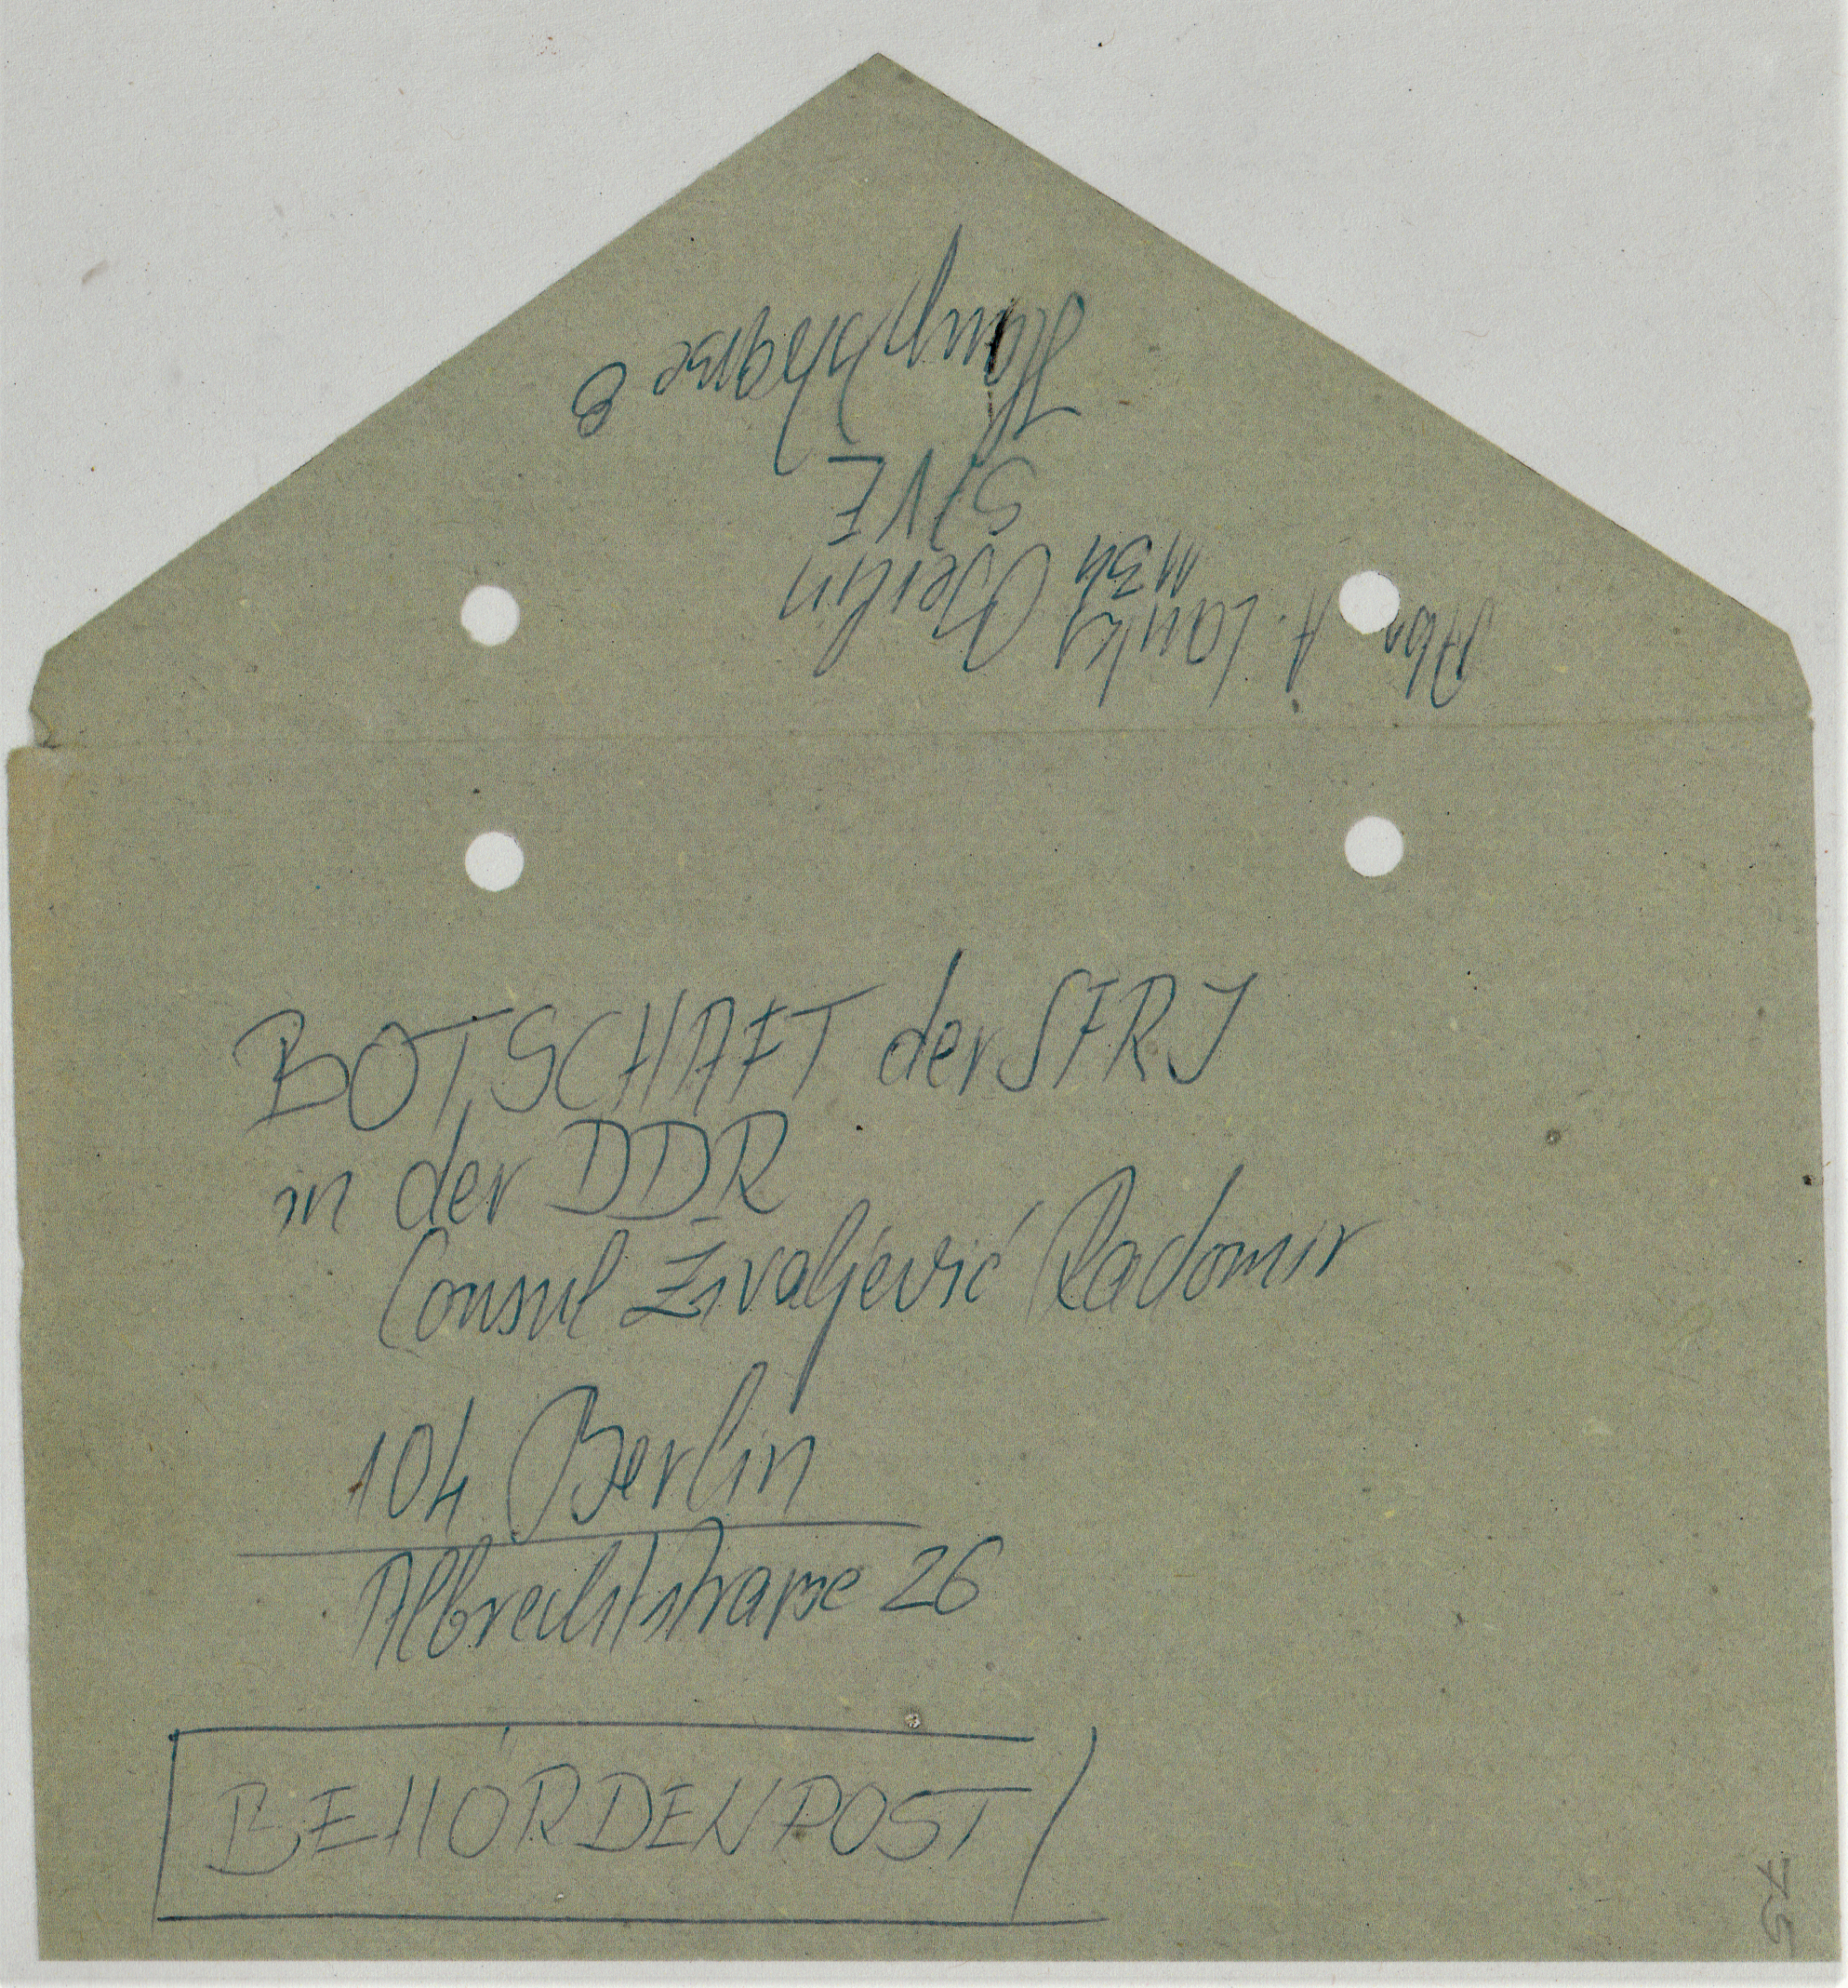 Abs. A. Lanks
1134 Berlin
StVE
Hauptstrasse 8
BOTSCHAFT der SFRJ
in der DDR
Consul Živaljević Radomir
104 Berlin
Albrechtstrasse 26
BEHÖRDENPOST